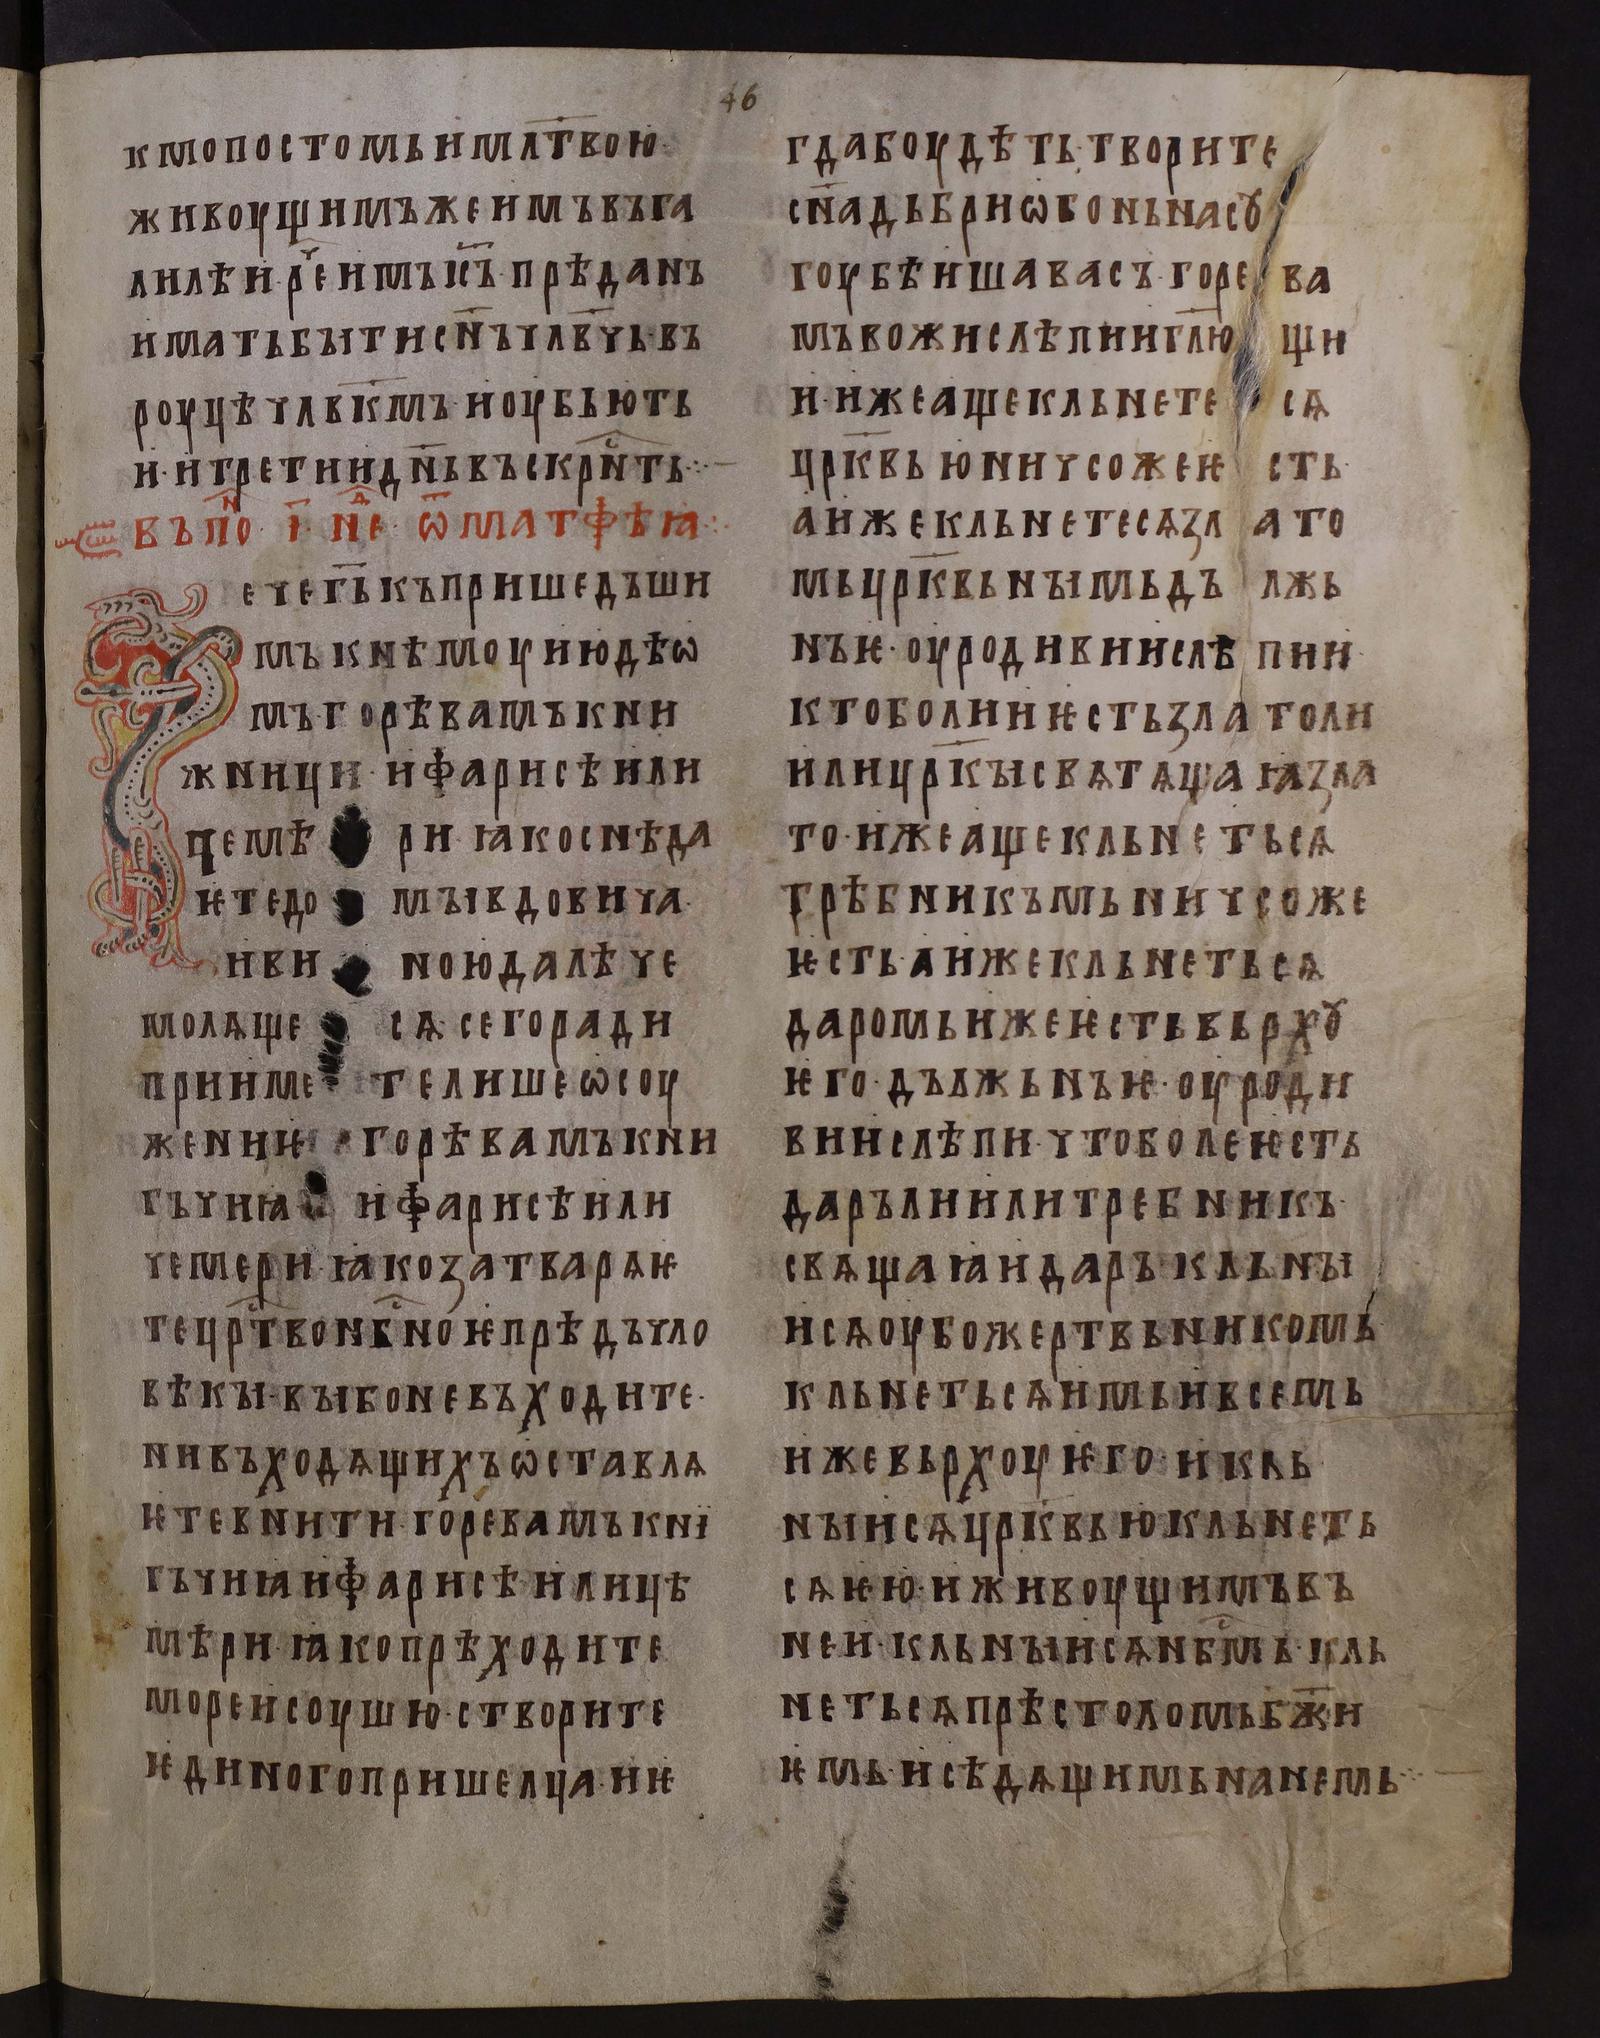 46
кмопостомьимл҃твою·
живоущимъжеимъвъга
лилѣи·рⷱ҇еимъис҃ъ·прѣданъ
иматьбытисн҃ъчлв҃чь·въ
роуцѣчлв҃кмъ·иоубьють
и·итретиидн҃ьвъскрⷭ҇нть·:·—
въпоⷩ҇·і҃·неⷣ·ѿматфѣꙗ·:·
ечег҃ькъпришедъши
мъкнѣмоуиюдѣѡ
мъ·горѣвамъкни
жници·ифарисѣили
цемѣри·ꙗкоснѣда
ѥтедомывдовича·
ивиноюдалѣче
молѧщесѧ·сегоради
прииметелишеѡсоу
жениѥ·горѣвамъкни
гъчиꙗифарисѣили
чемери·ꙗкозатварѧѥ
тецрⷭ҇твонбⷭ҇ноѥпрѣдъчло
вѣкы·выбоневъходите·
нивъходѧщихъѡставлѧ
ѥтевнити·горевамъкнї
гъчиꙗифарисѣ·илицѣ
мѣри·ꙗкопрѣходите
мореисоушю·створите
ѥдиногопришелца·иѥ
гдабоудѣть·творите
сн҃адьбриѡгоньнасꙋ
гоубѣишавасъ·горева
мъвожислѣпииигл҃ющи
и·ижеащекльнетесѧ
црк҃вьюничсожеѥсть·
аижекльнетесѧзлато
мьцрк҃вьнымьдължь
нъѥ·оуродивииислѣпии·
ктоболииѥстьзлатоли
илицрк҃ысвѧтѧщаꙗзла
то·ижеащекльнетьсѧ
трѣбникъмьничсоже
ѥсть·аижекльнетьсѧ
даромьижеѥстьвьрхꙋ
ѥго·дължьнъѥ·оуроди
вииислѣпи·чтоболеѥсть
даръ·лиилитребникъ·
свѧщаꙗидаръ·кльны
исѧоубожертвьникомь
кльнетьсѧимьивсемь
ижевьрхоуѥго·икль
ныисѧцрк҃вьюкльнеть
сѧѥю·иживоущимъвъ
неи·кльныисѧнбⷭ҇мь·кль
нетьсѧпрѣстоломьбж҃и
ѥмь·исѣдѧщимьнанемь·:·—